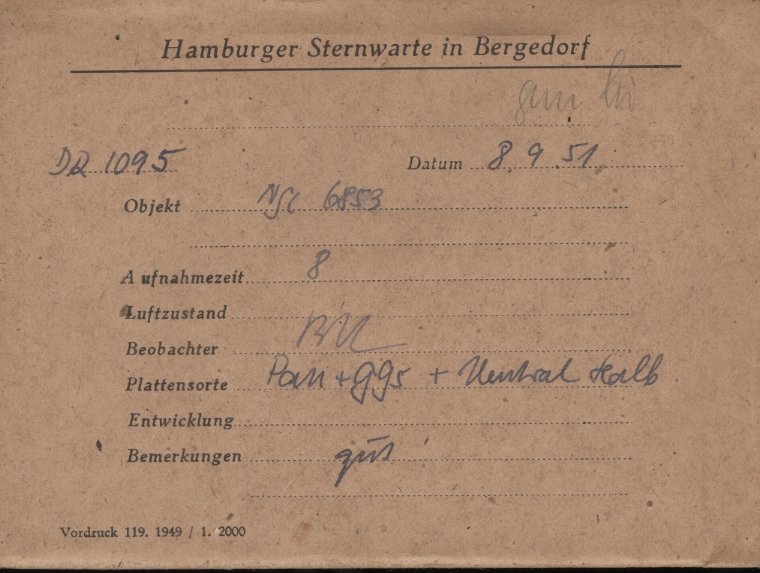 Hamburger Sternwarte in Bergedorf
DR 1095 Datum 8. 9. 51
Objekt NGC 6853
Aufnahmezeit 8
Luftzustand
Beobachter
Plattensorte Pan + gg5 + Neutral halb
Entwicklung
Bemerkungen gut
Vordruck 119. 1949 / 1. 2000